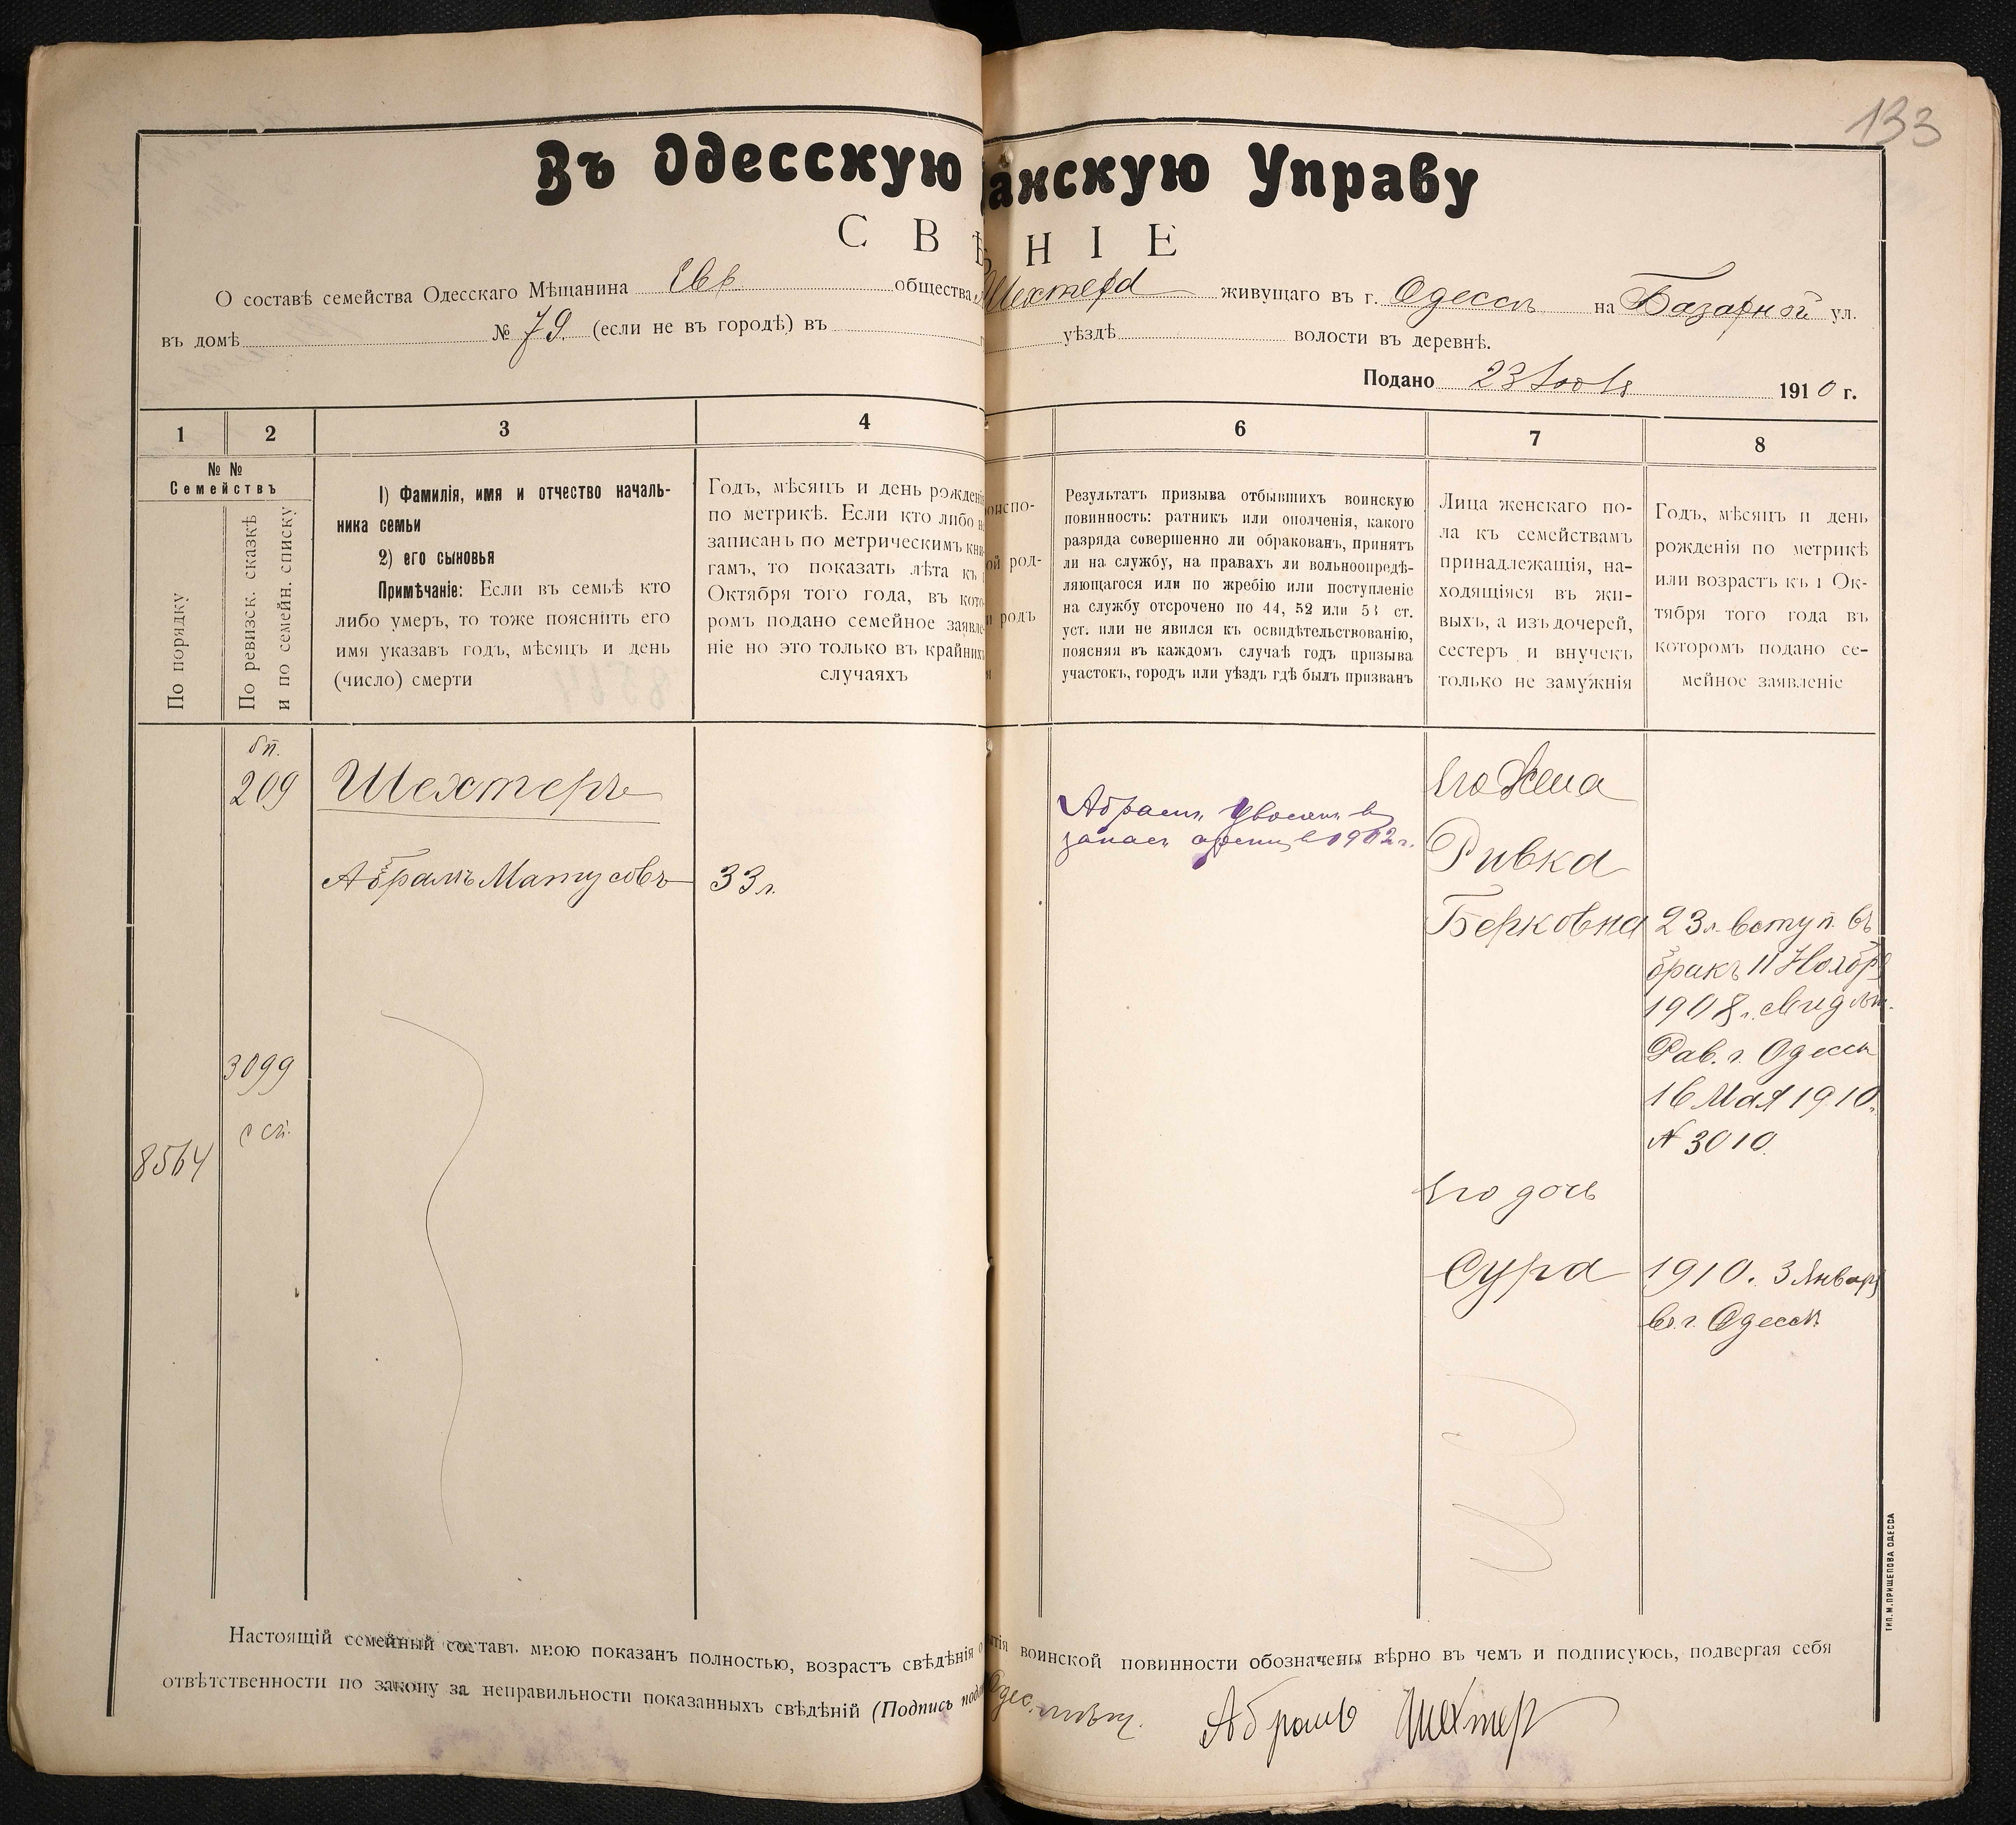 133
Въ Одесскую анскую Управу
СВѢ НІЕ
О составѣ семейства Одесскаго Мѣщанина Евр. общества Шехтера живущаго въ г. Одессѣ на Базарной ул.
въ домѣ № 79. (если не въ городѣ) въ уѣздѣ волости въ деревнѣ.
Подано 23 1910 г.
1 2 3 4 6 7 8
№ №
Семействъ
По порядку
По ревизск. сказкѣ
и по семейн. списку
1) Фамилія, имя и отчество началь-
ника семьи
2) его сыновья
Примѣчаніе: Если въ семьѣ кто
либо умеръ, то тоже пояснить его
имя указавъ годъ, мѣсяцъ и день
(число) смерти
Годъ, мѣсяцъ и день рожденія
по метрикѣ. Если кто либо не
записанъ по метрическимъ кни-
гамъ, то показать лѣта къ 1
Октября того года, въ кото-
ромъ подано семейное заявле-
ніе но это только въ крайнихъ
случаяхъ
оиспо-
ой род-
родъ
Результатъ призыва отбывшихъ воинскую
повинность: ратникъ или ополченія, какого
разряда совершенно ли обракованъ, принятъ
ли на службу, на правахъ ли вольноопредѣ-
ляющагося или по жребію или поступленіе
на службу отсрочено по 44, 52 или 53 ст.
уст. или не явился къ освидѣтельствованію,
поясняя въ каждомъ случаѣ годъ призыва
участокъ, городъ или уѣздъ гдѣ былъ призванъ
Лица женскаго по-
ла къ семействамъ
принадлежащія, на-
ходящіяся въ жи-
выхъ, а изъ дочерей,
сестеръ и внучекъ
только не замужнія
Годъ, мѣсяцъ и день
рожденія по метрикѣ
или возрастъ къ 1 Ок-
тября того года въ
которомъ подано се-
мейное заявленіе
бп.
209
Шехтеръ
Абрамъ Матусовъ
33 л.
3099
8564
Абрамъ уволенъ въ
запасъ арміи въ 1902 г.
Его Жена
Ривка
Берковна
23 л. вступ. въ
бракъ 11 Ноябр
1908 г. свидѣт.
Рав. г. Одессы
16 Мая 1910
№ 3010
Его дочь
Сура
1910. 3 Январ
въ г. Одессѣ
Настоящій семейный составъ мною показанъ полностью, возрастъ свѣдѣнія о воинской повинности обозначены вѣрно въ чемъ и подписуюсь, подвергая себя
отвѣтственности по закону за неправильности показанныхъ свѣдѣній (Подпись Одес. мѣщ. Абрамъ Шехтер
ТИП. М. ПРИЩЕПОВА ОДЕССА